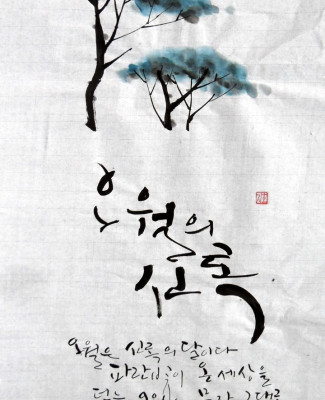 오월의
신록
오월은 신록의 달이다
파란빛이 온 세상을
덮는 오월 그대로